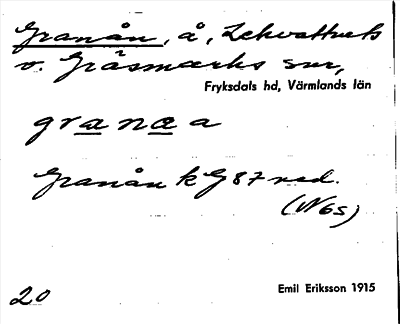 Granån, å, Lekvattnets
o. Gräsmarks snr,
Fryksdals hd, Värmlands län
grænæ a
Granån k G 87 red.
(N65)
20
Emil Eriksson 1915